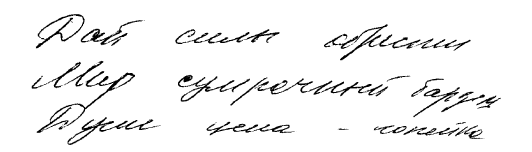 Дай силы обрести
Мир сумрачный бардов
Душе цена - копейка